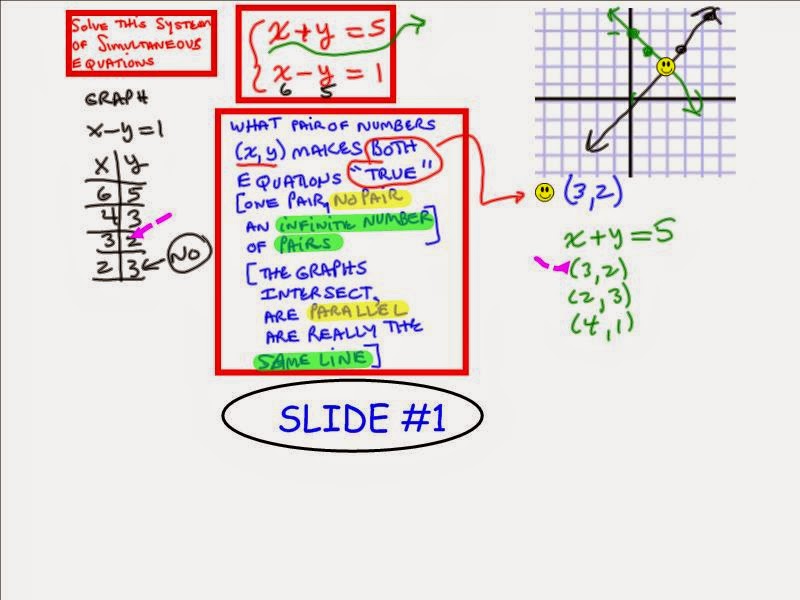 SOLVE THIS SYSTEM
OF SIMULTANEOUS
EQUATIONS
x+y=5
x-y=1
6 5
GRAPH
x-y=1
x y
6 5
4 3
3 2
2 3 NO
WHAT PAIR OF NUMBERS
(x,y) MAKES BOTH
EQUATIONS "TRUE"
[ONE PAIR, NO PAIR
AN INFINITE NUMBER
OF PAIRS]
[THE GRAPHS
INTERSECT,
ARE PARALLEL
ARE REALLY THE
SAME LINE]
(3,2)
x+y=5
(3,2)
(2,3)
(4,1)
SLIDE #1